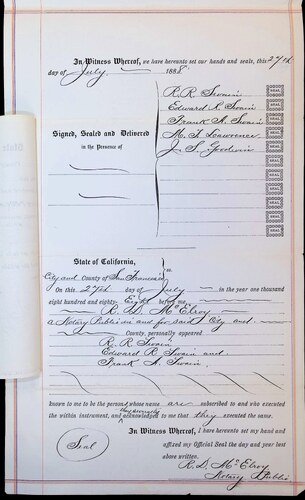 In Witness Whereof, we have hereunto set our hands and seals, this 27th
day of July 1888.
R. R. Swain
Edward R. Swain
Frank A. Swain
M. T. Lawrence
J. S. Goodwin
Signed, Sealed and Delivered
in the Presence of
SEAL
SEAL
SEAL
SEAL
SEAL
SEAL
SEAL
SEAL
SEAL
SEAL
SEAL
SEAL
State of California,
City and County of San Francisco } ss.
On this 27th day of July in the year one thousand
eight hundred and eighty-Eight before me
R. D. McElroy
a Notary Public in and for said City and
County, personally appeared
R. R. Swain
Edward R. Swain and
Frank A. Swain,
known to me to be the persons whose names are subscribed to and who executed
the within instrument, and they severally acknowledged to me that they executed the same.
In Witness Whereof, I have hereunto set my hand and
affixed my Official Seal the day and year last
above written.
Seal
R. D. McElroy
Notary Public